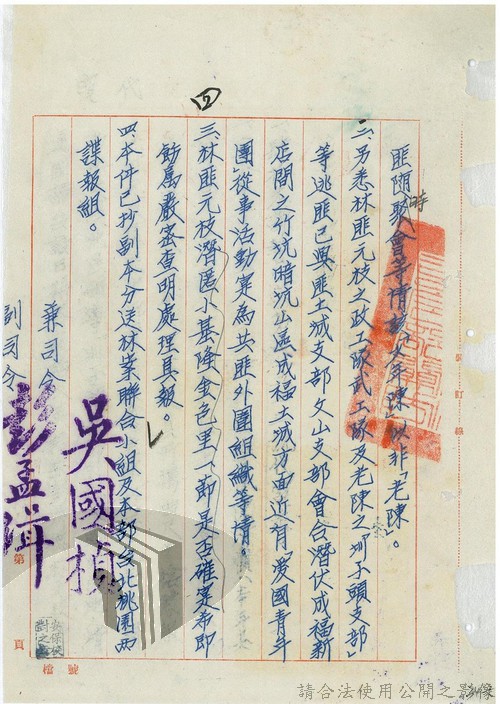 四
匪隨時聚會等情該「文年陳」以非「老陳」。
二、另悉林匪元枝之政工隊武工隊及老陳之圳子頭支部
等逃匪已與匪土城支部文山支部會合潛伏成福新
店間之竹坑暗坑山區成福土城方面近有愛國青年
團從事活動業為共匪外圍組織等情。
三、林匪元枝潛匿小基隆金色里一節是否確實希即
飭屬嚴密查明處理具報。
四、本件已抄副本分送林業聯合小組及本部台北桃園兩
諜報組。
兼司令
吳國楨
副司令
彭孟緝
第 頁
檔 號
請合法使用公開之影像